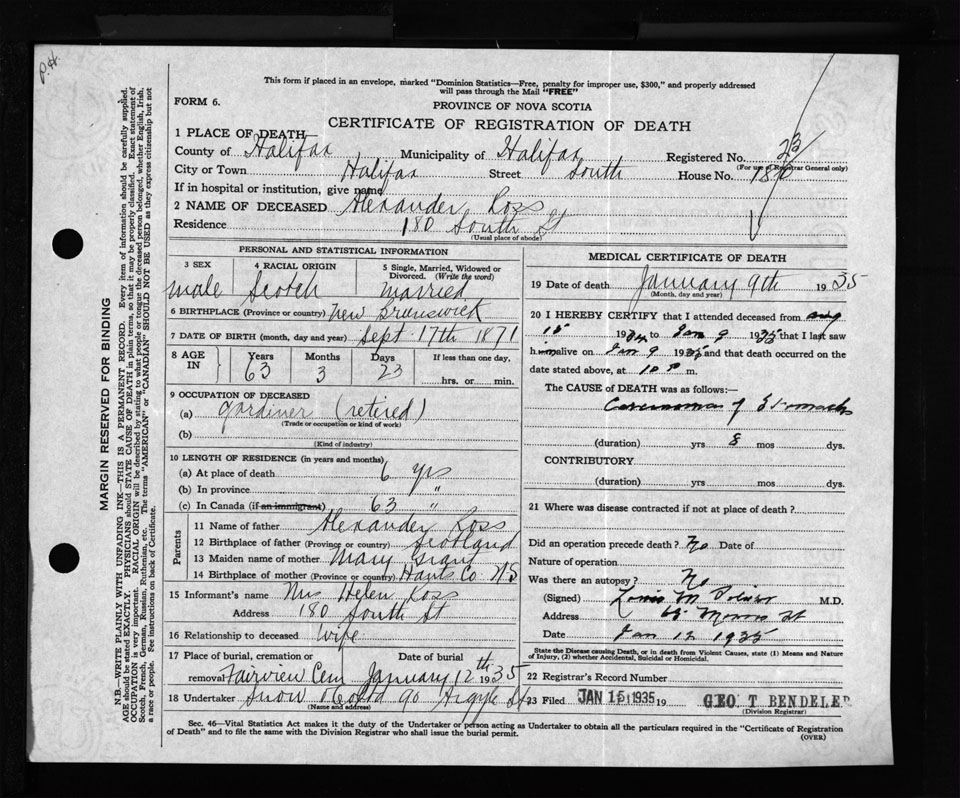 P.H.
This form if placed in an envelope, marked "Dominion Statistics—Free, penalty for improper use, $300," and properly addressed
will pass through the Mail "FREE"
FORM 6.
PROVINCE OF NOVA SCOTIA
CERTIFICATE OF REGISTRATION OF DEATH
1 PLACE OF DEATH—
County of Halifax Municipality of Halifax Registered No. 23
(For use of Registrar General only)
City or Town Halifax Street South House No. 180
If in hospital or institution, give name
2 NAME OF DECEASED Alexander Ross
Residence 180 South St
(Usual place of abode)
PERSONAL AND STATISTICAL INFORMATION
3 SEX 4 RACIAL ORIGIN 5 Single, Married, Widowed or Divorced. (Write the word)
male Scotch married
6 BIRTHPLACE (Province or country) New Brunswick
7 DATE OF BIRTH (month, day and year) Sept 17th 1871
8 AGE IN Years Months Days If less than one day,
63 3 23 hrs. or min.
9 OCCUPATION OF DECEASED
(a) gardiner (retired)
(Trade or occupation or kind of work)
(b)
(Kind of industry)
10 LENGTH OF RESIDENCE (in years and months)
(a) At place of death 6 yrs
(b) In province "
(c) In Canada (if an immigrant) 63 "
Parents
11 Name of father Alexander Ross
12 Birthplace of father (Province or country) Scotland
13 Maiden name of mother Mary Grant
14 Birthplace of mother (Province or country) Hants Co. NS
15 Informant's name Mrs Helen Ross
Address 180 South St
16 Relationship to deceased Wife
17 Place of burial, cremation or Date of burial
removal Fairview Cem January 12th 1935
18 Undertaker Snow & Co Ltd 90 Argyle St
(Name and address)
MEDICAL CERTIFICATE OF DEATH
19 Date of death January 9th 1935
(Month, day and year)
20 I HEREBY CERTIFY that I attended deceased from Aug
15 1934 to Jan 9 1935 that I last saw
him alive on Jan 9 1935 and that death occurred on the
date stated above, at 10 p m.
The CAUSE of DEATH was as follows:—
Carcinoma of Stomach
(duration) yrs 8 mos dys.
CONTRIBUTORY
(duration) yrs. mos. dys.
21 Where was disease contracted if not at place of death?
Did an operation precede death? No Date of
Nature of operation
Was there an autopsy? No
(Signed) Louis M M.D.
Address Morris St
Date Jan 12 1935
State the Disease causing Death, or in death from Violent Causes, state (1) Means and Nature
of Injury, (2) whether Accidental, Suicidal or Homicidal.
22 Registrar's Record Number
23 Filed JAN 15 1935 19 GEO T BENDELER
(Division Registrar)
Sec. 46—Vital Statistics Act makes it the duty of the Undertaker or person acting as Undertaker to obtain all the particulars required in the "Certificate of Registration
of Death" and to file the same with the Division Registrar who shall issue the burial permit.
(OVER)
MARGIN RESERVED FOR BINDING
N.B.—WRITE PLAINLY WITH UNFADING INK—THIS IS A PERMANENT RECORD. Every item of information should be carefully supplied.
AGE should be stated EXACTLY. PHYSICIANS should STATE CAUSE OF DEATH in plain terms, so that it may be properly classified. Exact statement of
OCCUPATION is very important. RACIAL ORIGIN will be described by stating to what people or tongue the deceased person belonged, whether English, Irish,
Scotch, French, German, Russian, Ruthenian, etc. The terms "AMERICAN" or "CANADIAN" SHOULD NOT BE USED as they express citizenship but not
a race or people. See instructions on back of Certificate.